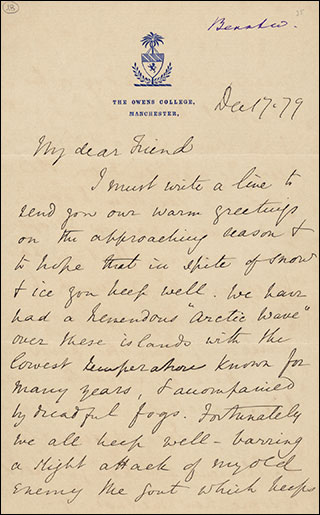 Dec 17. 79
THE OWENS COLLEGE,
MANCHESTER,
My dear Friend
I must write a line to
send you our warm greetings
on the approaching season &
to hope that in spite of snow
& ice you keep well. We have
had a tremendous "Arctic Wave"
over these islands with the
lowest temperature known for
many years, & accompanied
by dreadful fogs. Fortunately
we all keep well - barring
a slight attack of my old
enemy the Gout which keeps